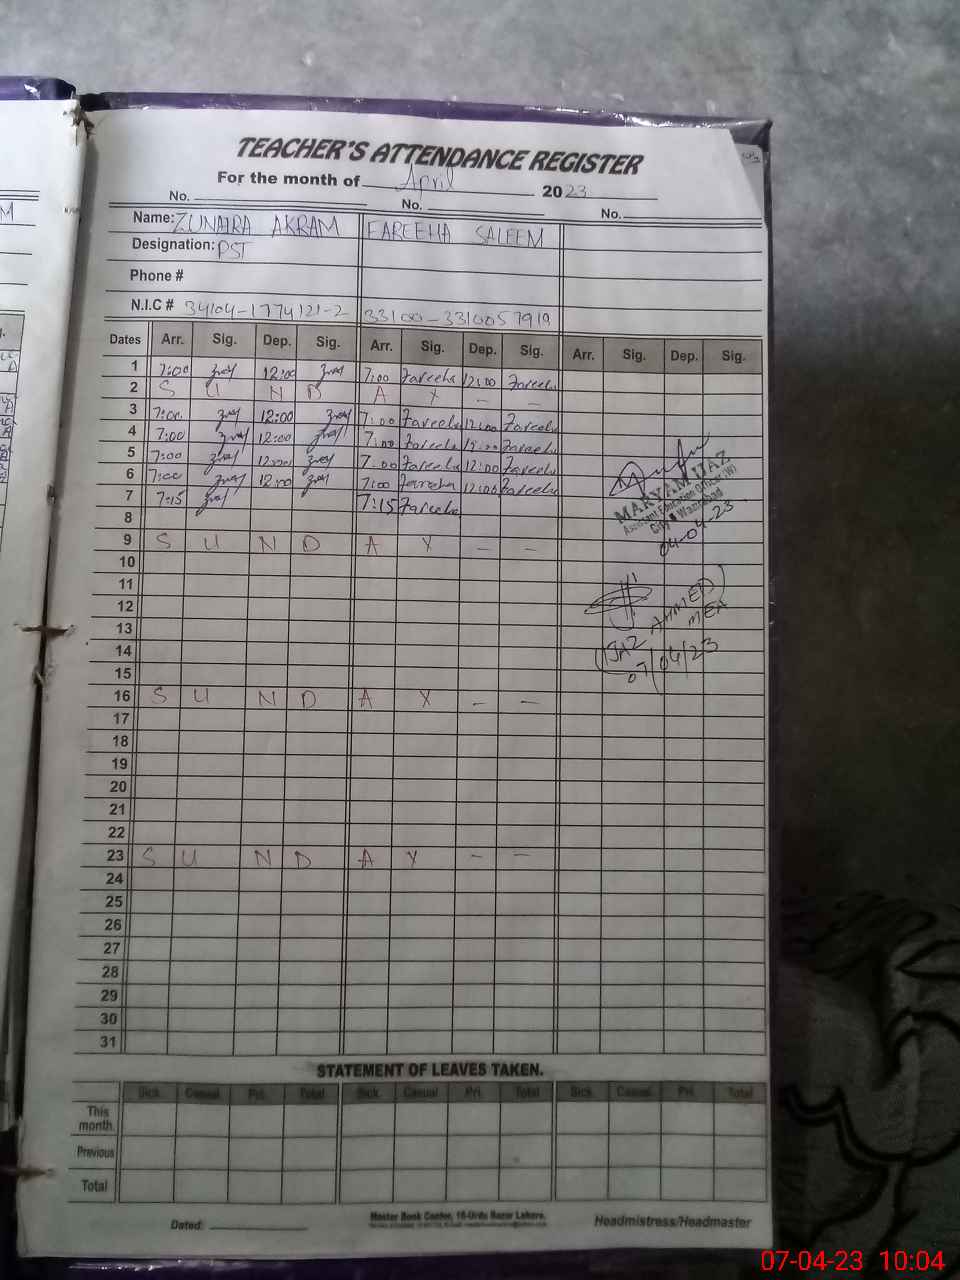 TEACHER'S ATTENDANCE REGISTER
For the month of April 2023
No. No. No.
Name: ZUNAIRA AKRAM FAREEHA SALEEM
Designation: PST
Phone #
N.I.C # 34104-1774121-2 33100-3310057919
Dates Arr. Sig. Dep. Sig. Arr. Sig. Dep. Sig. Arr. Sig. Dep. Sig.
1 7:00 12:00 7:00 Fareeha 12:00 Fareeha
2 S U N D A Y - -
3 7:00 12:00 7:00 Fareeha 12:00 Fareeha
4 7:00 12:00 7:00 Fareeha 12:00 Fareeha
5 7:00 12:00 7:00 Fareeha 12:00 Fareeha
6 7:00 12:00 7:00 Fareeha 12:00 Fareeha
7 7:15 7:15 Fareeha
8
MARYAM IJAZ
Assistant Education Officer (W)
City Wazirabad
04-04-23
9 S U N D A Y - -
10
11
12
13
14
15
IJAZ AHMED
MEA
07/04/23
16 S U N D A Y - -
17
18
19
20
21
22
23 S U N D A Y - -
24
25
26
27
28
29
30
31
STATEMENT OF LEAVES TAKEN.
Sick Casual Pri. Total Sick Casual Pri. Total Sick Casual Pri. Total
This month.
Previous
Total
Dated:
Master Book Center, 16-Urdu Bazar Lahore.
Headmistress/Headmaster
07-04-23 10:04